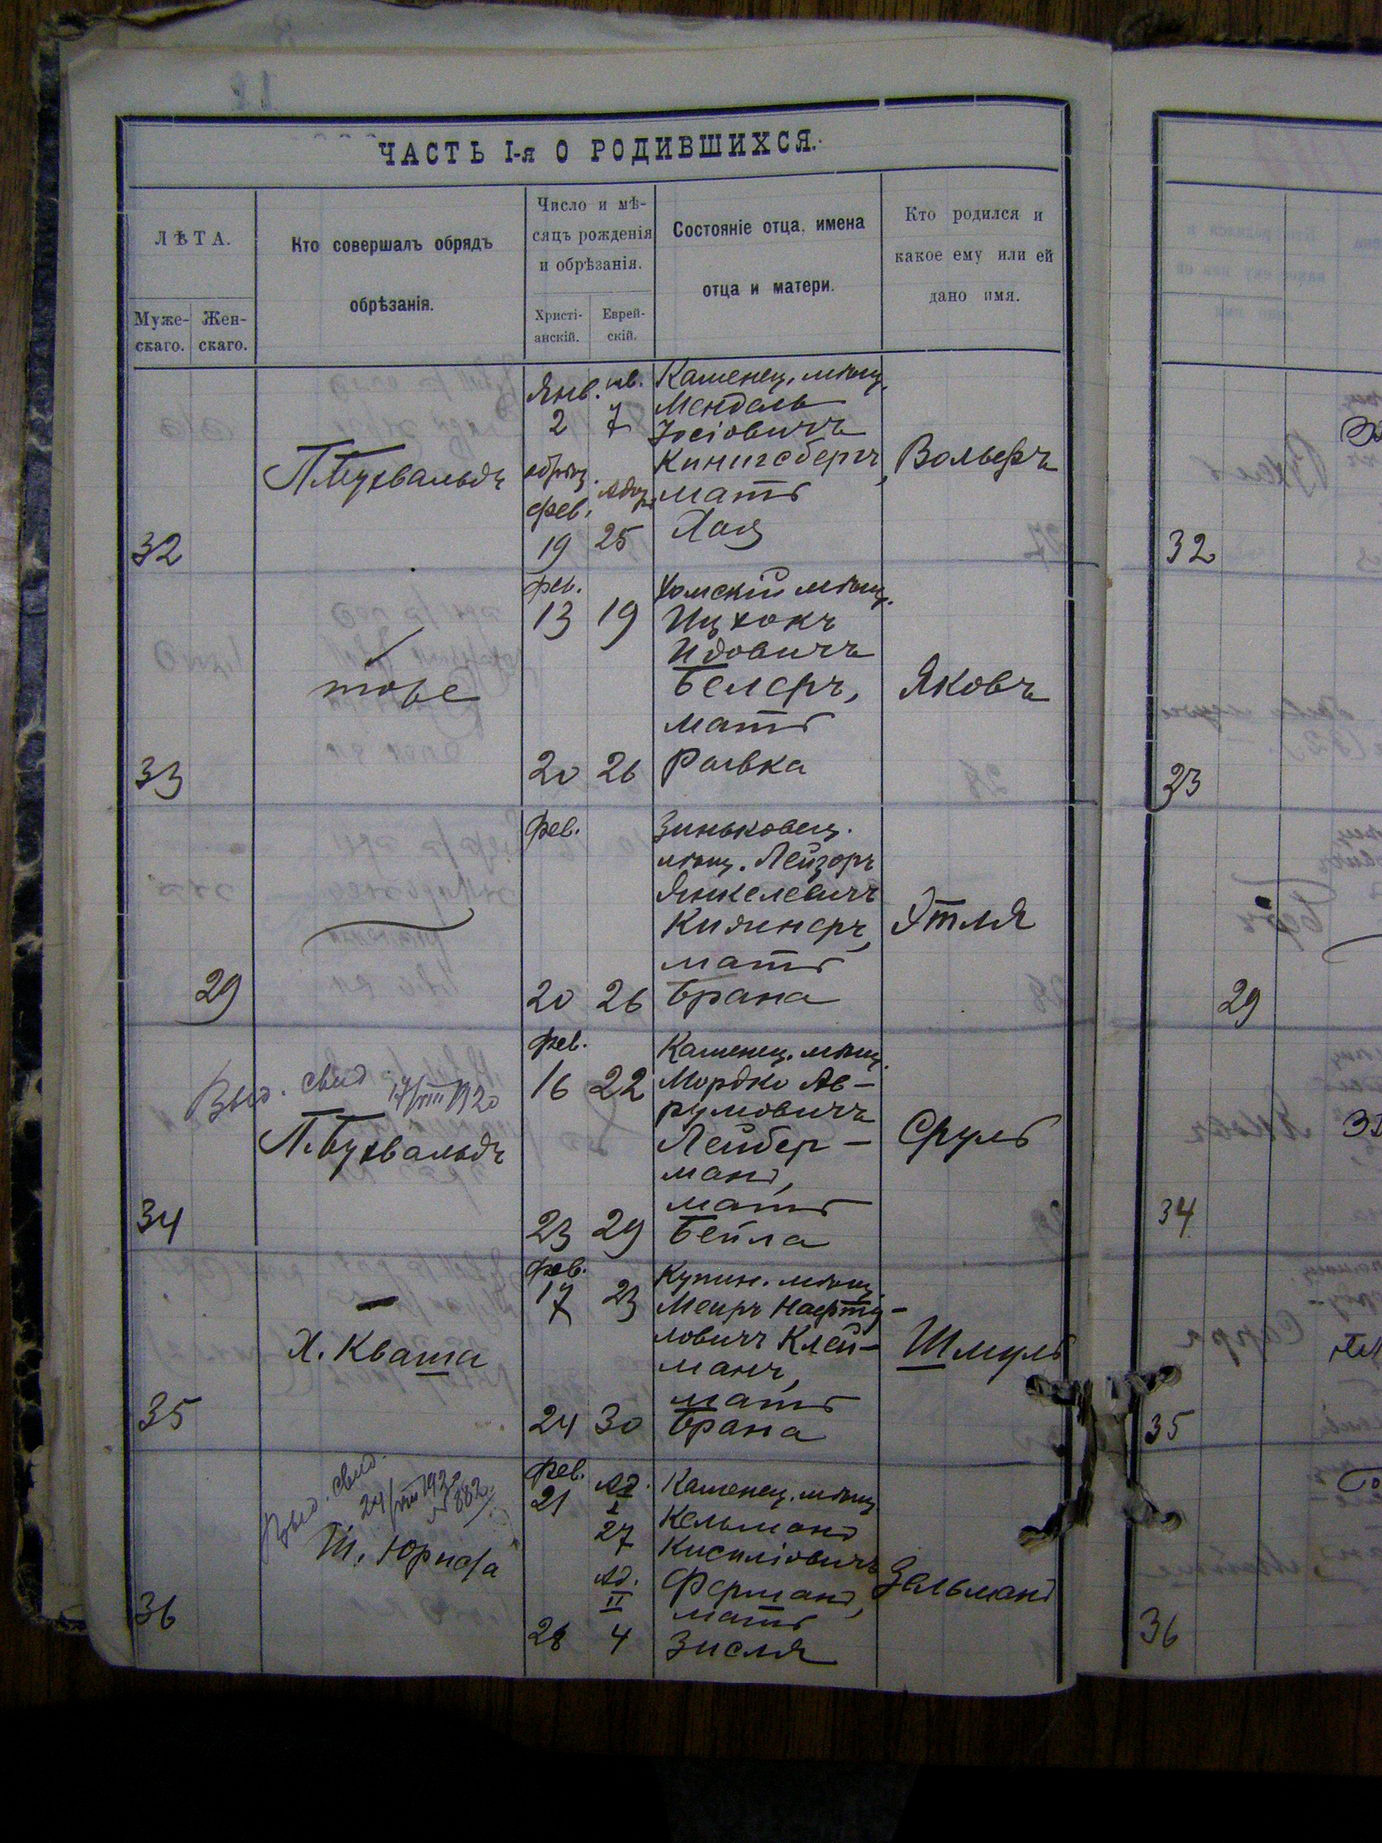 ЧАСТЬ I-я О РОДИВШИХСЯ.
ЛѢТА.
Муже-
скаго.
Жен-
скаго.
Кто совершалъ обрядъ
обрѣзанія.
Число и мѣ-
сяцъ рожденія
и обрѣзанія.
Христі-
анскій.
Еврей-
скій.
Состояніе отца, имена
отца и матери.
Кто родился и
какое ему или ей
дано имя.
32
П. Бухвальдъ
Янв.
2 7
обрѣз.
фев.
19 25
Каменец. мѣщ.
Мендель
Іосіовичъ
Кинигсбергъ,
мать
Хая
Вольфъ
33
тоже
фев.
13 19
20 26
Хомскій мѣщ.
Ицхокъ
Идовичъ
Белеръ,
мать
Ривка
Яковъ
29
фев.
20 26
Зиньковец.
мѣщ. Лейзоръ
Янкелевичъ
мать
Брана
Этля
34
Выд. свид
17/VIII 1920
П. Бухвальдъ
фев.
16 22
23 29
Каменец. мѣщ.
Мордко Ав-
румовичъ
Лейбер-
манъ,
мать
Бейла
Сруль
35
Х. Кваша
фев.
17 23
24 30
Купин. мѣщ.
Меиръ Нафту-
ловичъ Клей-
манъ,
мать
Брана
Шмуль
36
Выд. свид.
24/VIII 1920
№ 882
фев. Ад.
21 I
27
Ад.
II
28 4
Каменец. мѣщ.
Кельманъ
Киселіовичъ
Ферманъ,
мать
Зисля
Зельманъ
32
33
29
34
35
36